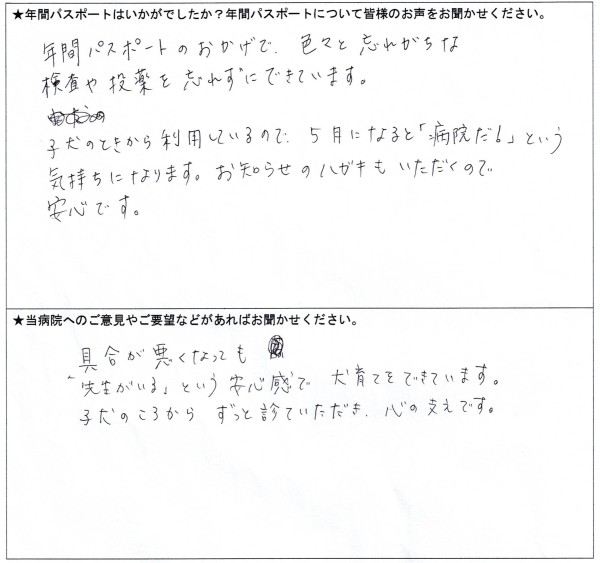 ★年間パスポートはいかがでしたか？年間パスポートについて皆様のお声をお聞かせください。
年間パスポートのおかげで、色々と忘れがちな
検査や投薬を忘れずにできています。
子犬のときから利用しているので、5月になると「病院だ!」という
気持ちになります。お知らせのハガキもいただくので
安心です。
★当病院へのご意見やご要望などがあればお聞かせください。
具合が悪くなっても
「先生がいる」という安心感で犬育てをできています。
子犬のころからずっと診ていただき、心の支えです。